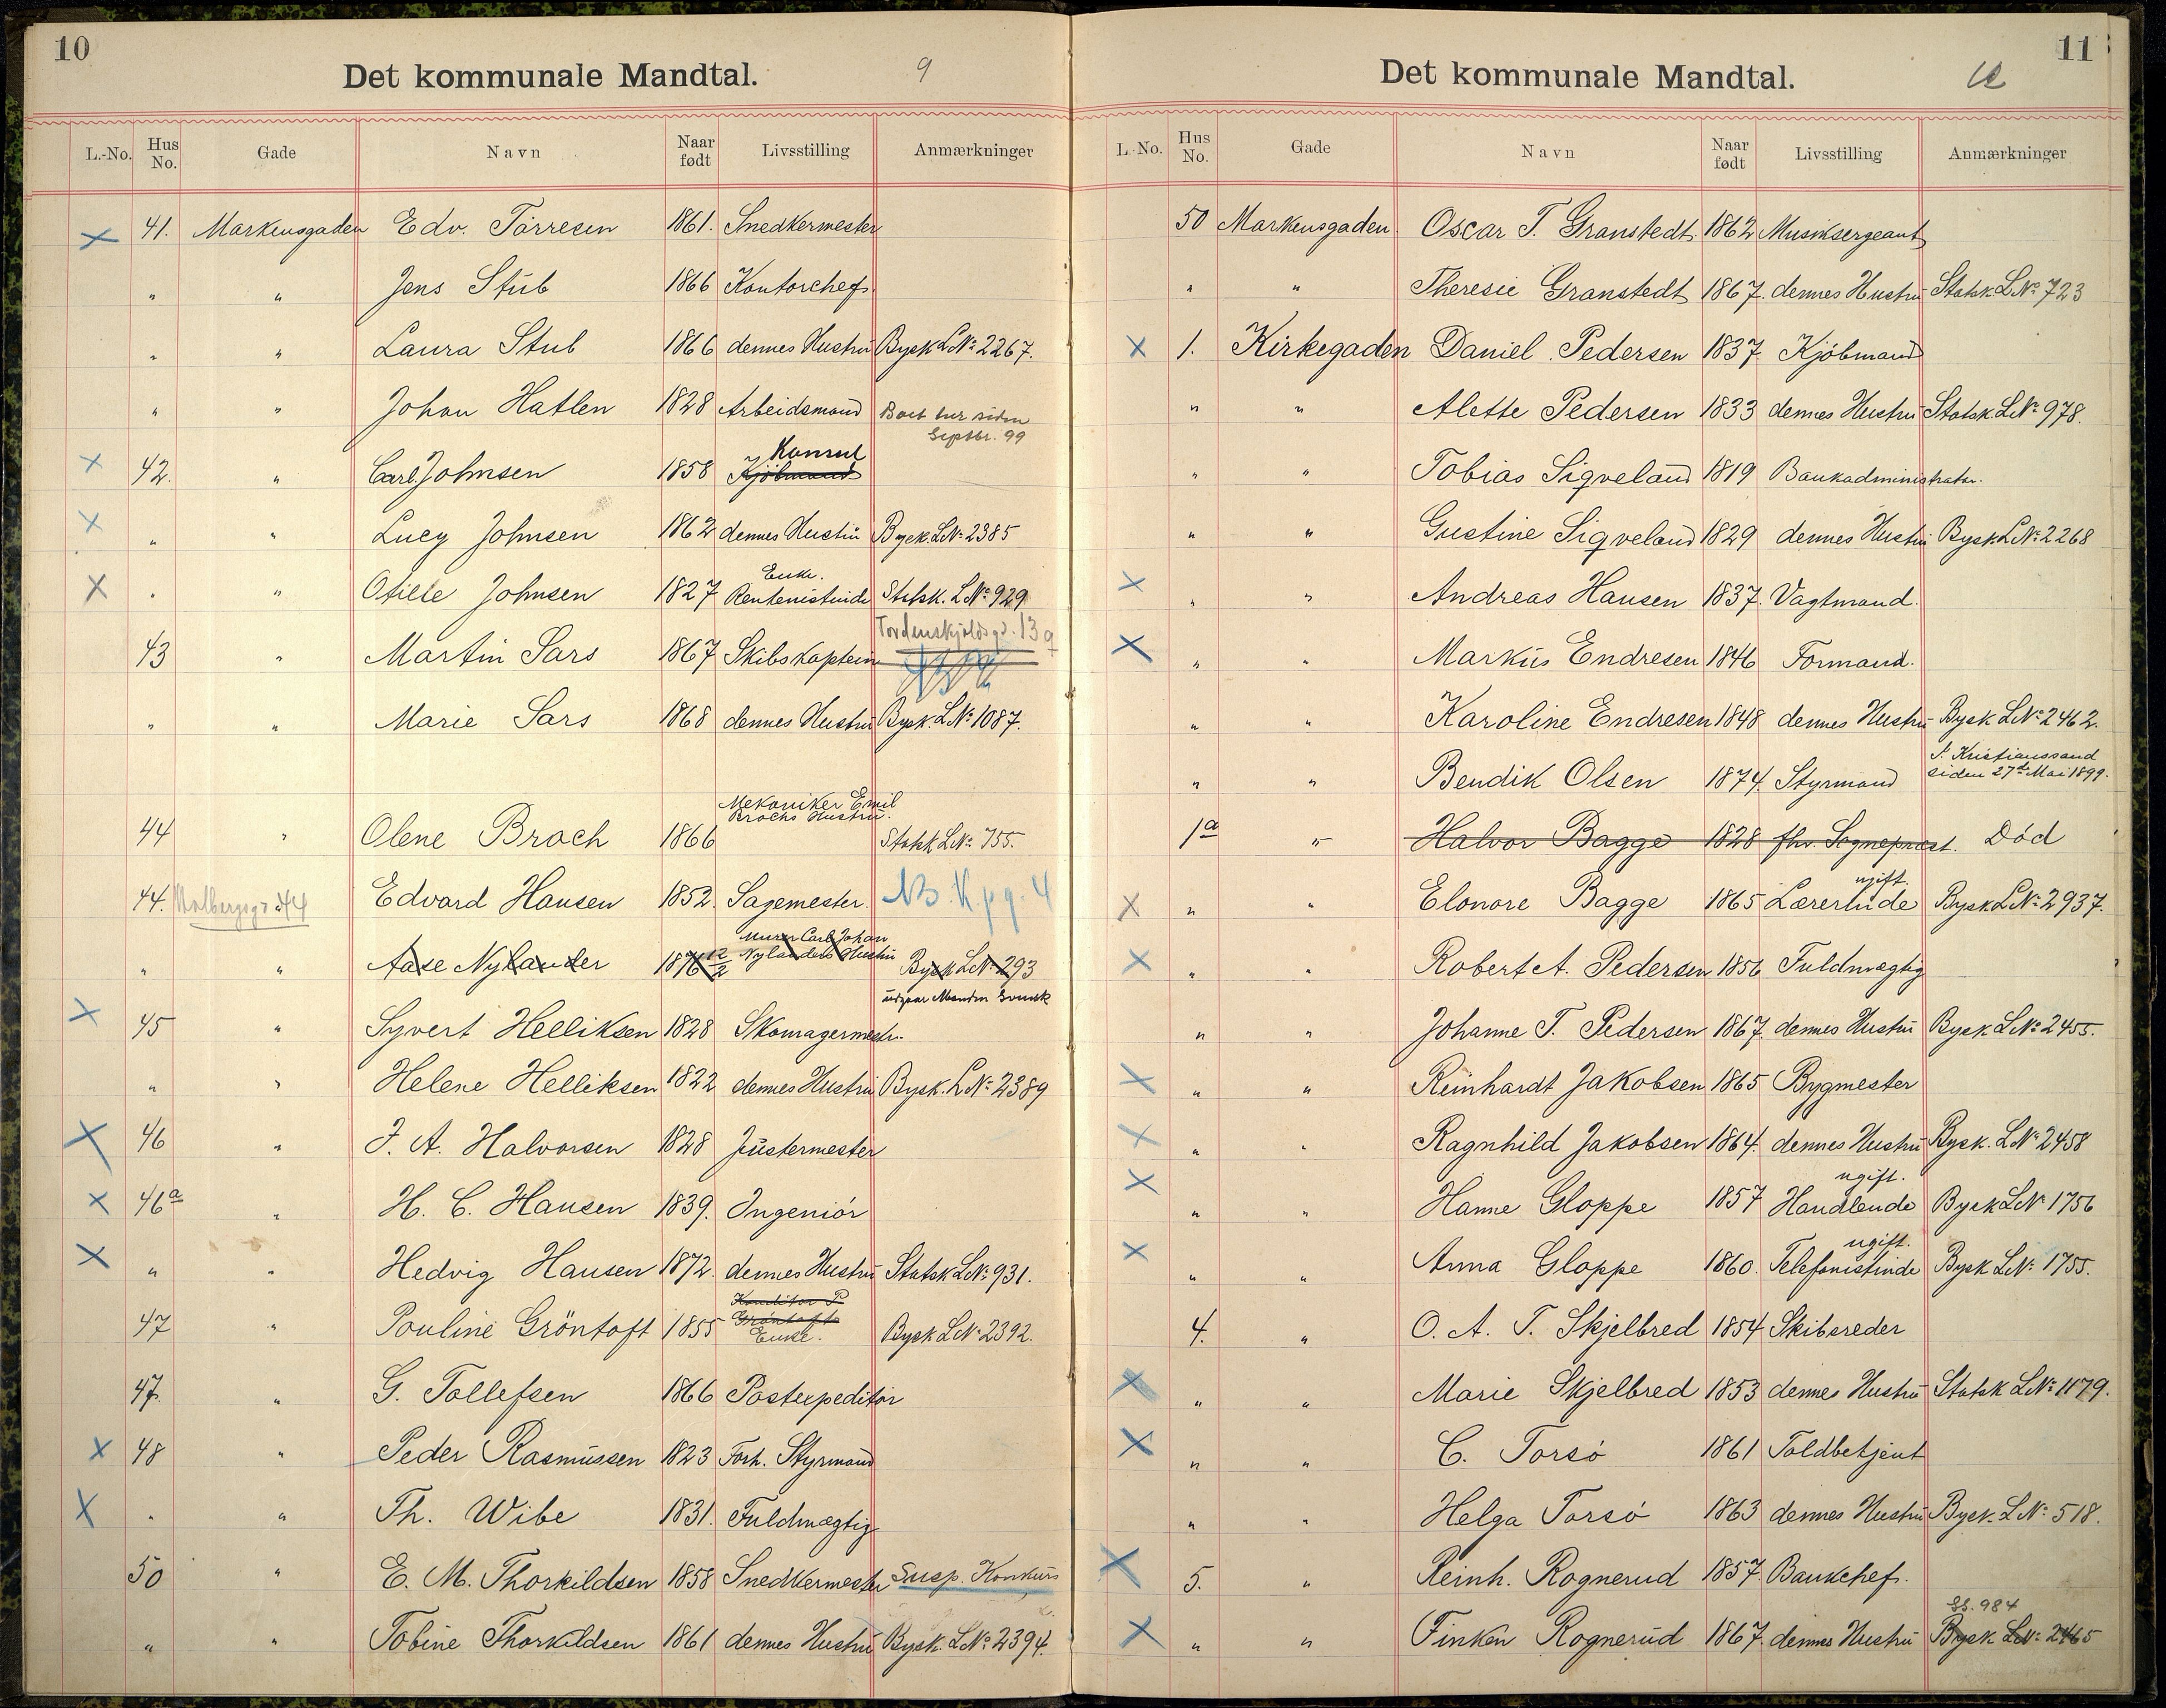 10
Det kommunale Mandtal. 9
L.-No. Hus No. Gade Navn Naar født Livsstilling Anmærkninger
41. Markensgaden Edv. Tørresen 1861. Snedkermester
" " Jens Stub 1866 Kontorchef
" " Laura Stub 1866 dennes Hustru Bysk LNo 2267.
" " Johan Hatlen 1828 Arbeidsmand Boet her siden
Septbr. 99
Konsul
42. " Carl Johnsen 1858 Kjøbmand
" " Lucy Johnsen 1862 dennes Hustru Bysk. LNo 2385
Enke.
" " Otilie Johnsen 1827 Rentenistinde Statsk. LNo 929
Tordenskjoldsgd. 13a
43 " Martin Sars 1867 Skibskaptein
" " Marie Sars 1868 dennes Hustru Bysk. LNo 1087.
Mekaniker Emil
Brochs Hustru.
44 " Olene Broch 1866 Statsk LNo 755.
44. Holbergsgd 44 Edvard Hansen 1852. Sagemester. NB. K pg. 4
Murer Carl Johan
" " Aase Nylander 1876 12/2 Nylanders Hustru Bysk LNo 293
udgaar Manden Svensk
45 " Syvert Helliksen 1828 Skomagermestr.
" " Helene Helliksen 1822 dennes Hustru Bysk. LNo 2389
46 " J. A. Halvorsen 1828 Justermester
46a " H. C. Hansen 1839. Ingeniør
" " Hedvig Hansen 1872. dennes Hustru Statsk LNo 931.
Konditor P
Grøntofts
47 " Pouline Gröntoft 1855 Enke. Bysk LNo 2392.
47. " G. Tollefsen 1866 Postexpeditør
48 " Peder Rasmussen 1823 Forh. Styrmand
" " Th. Wibe 1831. Fuldmægtig
50 " E. M. Thorkildsen 1858 Snedkermester Susp. Konkurs
" " Tobine Thorkildsen 1861 dennes Hustru Bysk. LNo 2394.
11
Det kommunale Mandtal. 10
L.-No. Hus No. Gade Navn Naar født Livsstilling Anmærkninger
50 Markensgaden Oscar T. Granstedt 1862 Musiksergeant
" " Theresie Granstedt 1867. dennes Hustru Statsk. LNo 723
1. Kirkegaden Daniel Pedersen 1837. Kjøbmand
" " Alette Pedersen 1833 dennes Hustru Statsk. LNo 978.
" " Tobias Siqveland 1819 Bankadministrator.
" " Gustine Siqveland 1829 dennes Hustru Bysk LNo 2268
" " Andreas Hansen 1837. Vagtmand.
" " Markus Endresen 1846 Formand.
" " Karoline Endresen 1848 dennes Hustru Bysk LNo 2462.
I Kristianssand
" " Bendik Olsen 1874. Styrmand siden 27de Mai 1899.
1a " Halvor Bagge 1828 fhv. Sogneprest. Død
ugift.
" " Elonore Bagge 1865 Lærerinde Bysk LNo 2937.
" " Robert A. Pedersen 1856 Fuldmægtig
" " Johanne T. Pedersen 1867. dennes Hustru Bysk. LNo 2455.
" " Reinhardt Jakobsen 1865 Bygmester
" " Ragnhild Jakobsen 1864. dennes Hustru Bysk. LNo 2458
ugift.
" " Hanne Gloppe 1857 Handlende Bysk LNo 1756
ugift.
" " Anna Gloppe 1860. Telefonistinde Bysk LNo 1755.
4. " O. A. T. Skjelbred 1854 Skibsreder
" " Marie Skjelbred 1853 dennes Hustru Statsk LNo 1179.
" " C. Torsö 1861 Toldbetjent
" " Helga Torsö 1863 dennes Hustru Bysk. LNo 518.
5. " Reinh. Rognerud 1857. Bankchef.
SS. 984
" " Finken Rognerud 1867. dennes Hustru Bysk LNo 2465